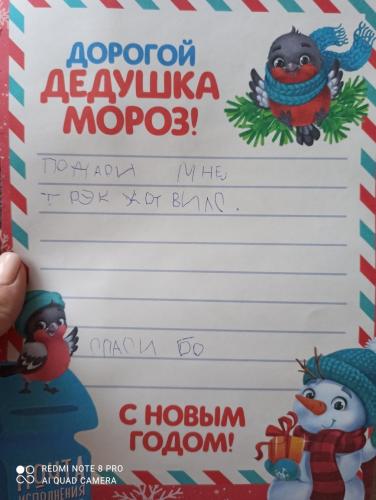 ДОРОГОЙ
ДЕДУШКА
МОРОЗ!
ПОДАРИ МНЕ
ТРЭК ХОТ ВИЛС.
СПАСИ БО
С НОВЫМ
ГОДОМ!
ПОЧТА
ИСПОЛНЕНИЯ
REDMI NOTE 8 PRO
AI QUAD CAMERA